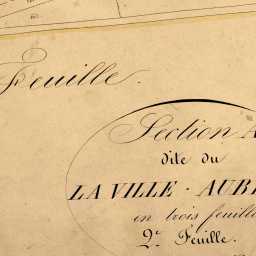 Feuille.
Section A
dite du
LA VILLE - AUBR
en trois feuille
2e Feuille.